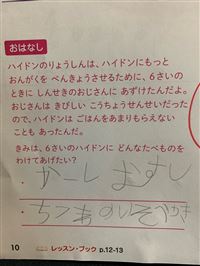 おはなし
ハイドンのりょうしんは、ハイドンにもっと
おんがくを べんきょうさせるために、6さいの
ときに しんせきのおじさんに あずけたんだよ。
おじさんは きびしい こうちょうせんせいだった
ので、ハイドンは ごはんをあまりもらえない
ことも あったんだ。
きみは、6さいのハイドンに どんなたべものを
わけてあげたい?
・
・
10 レッスン・ブック p.12-13